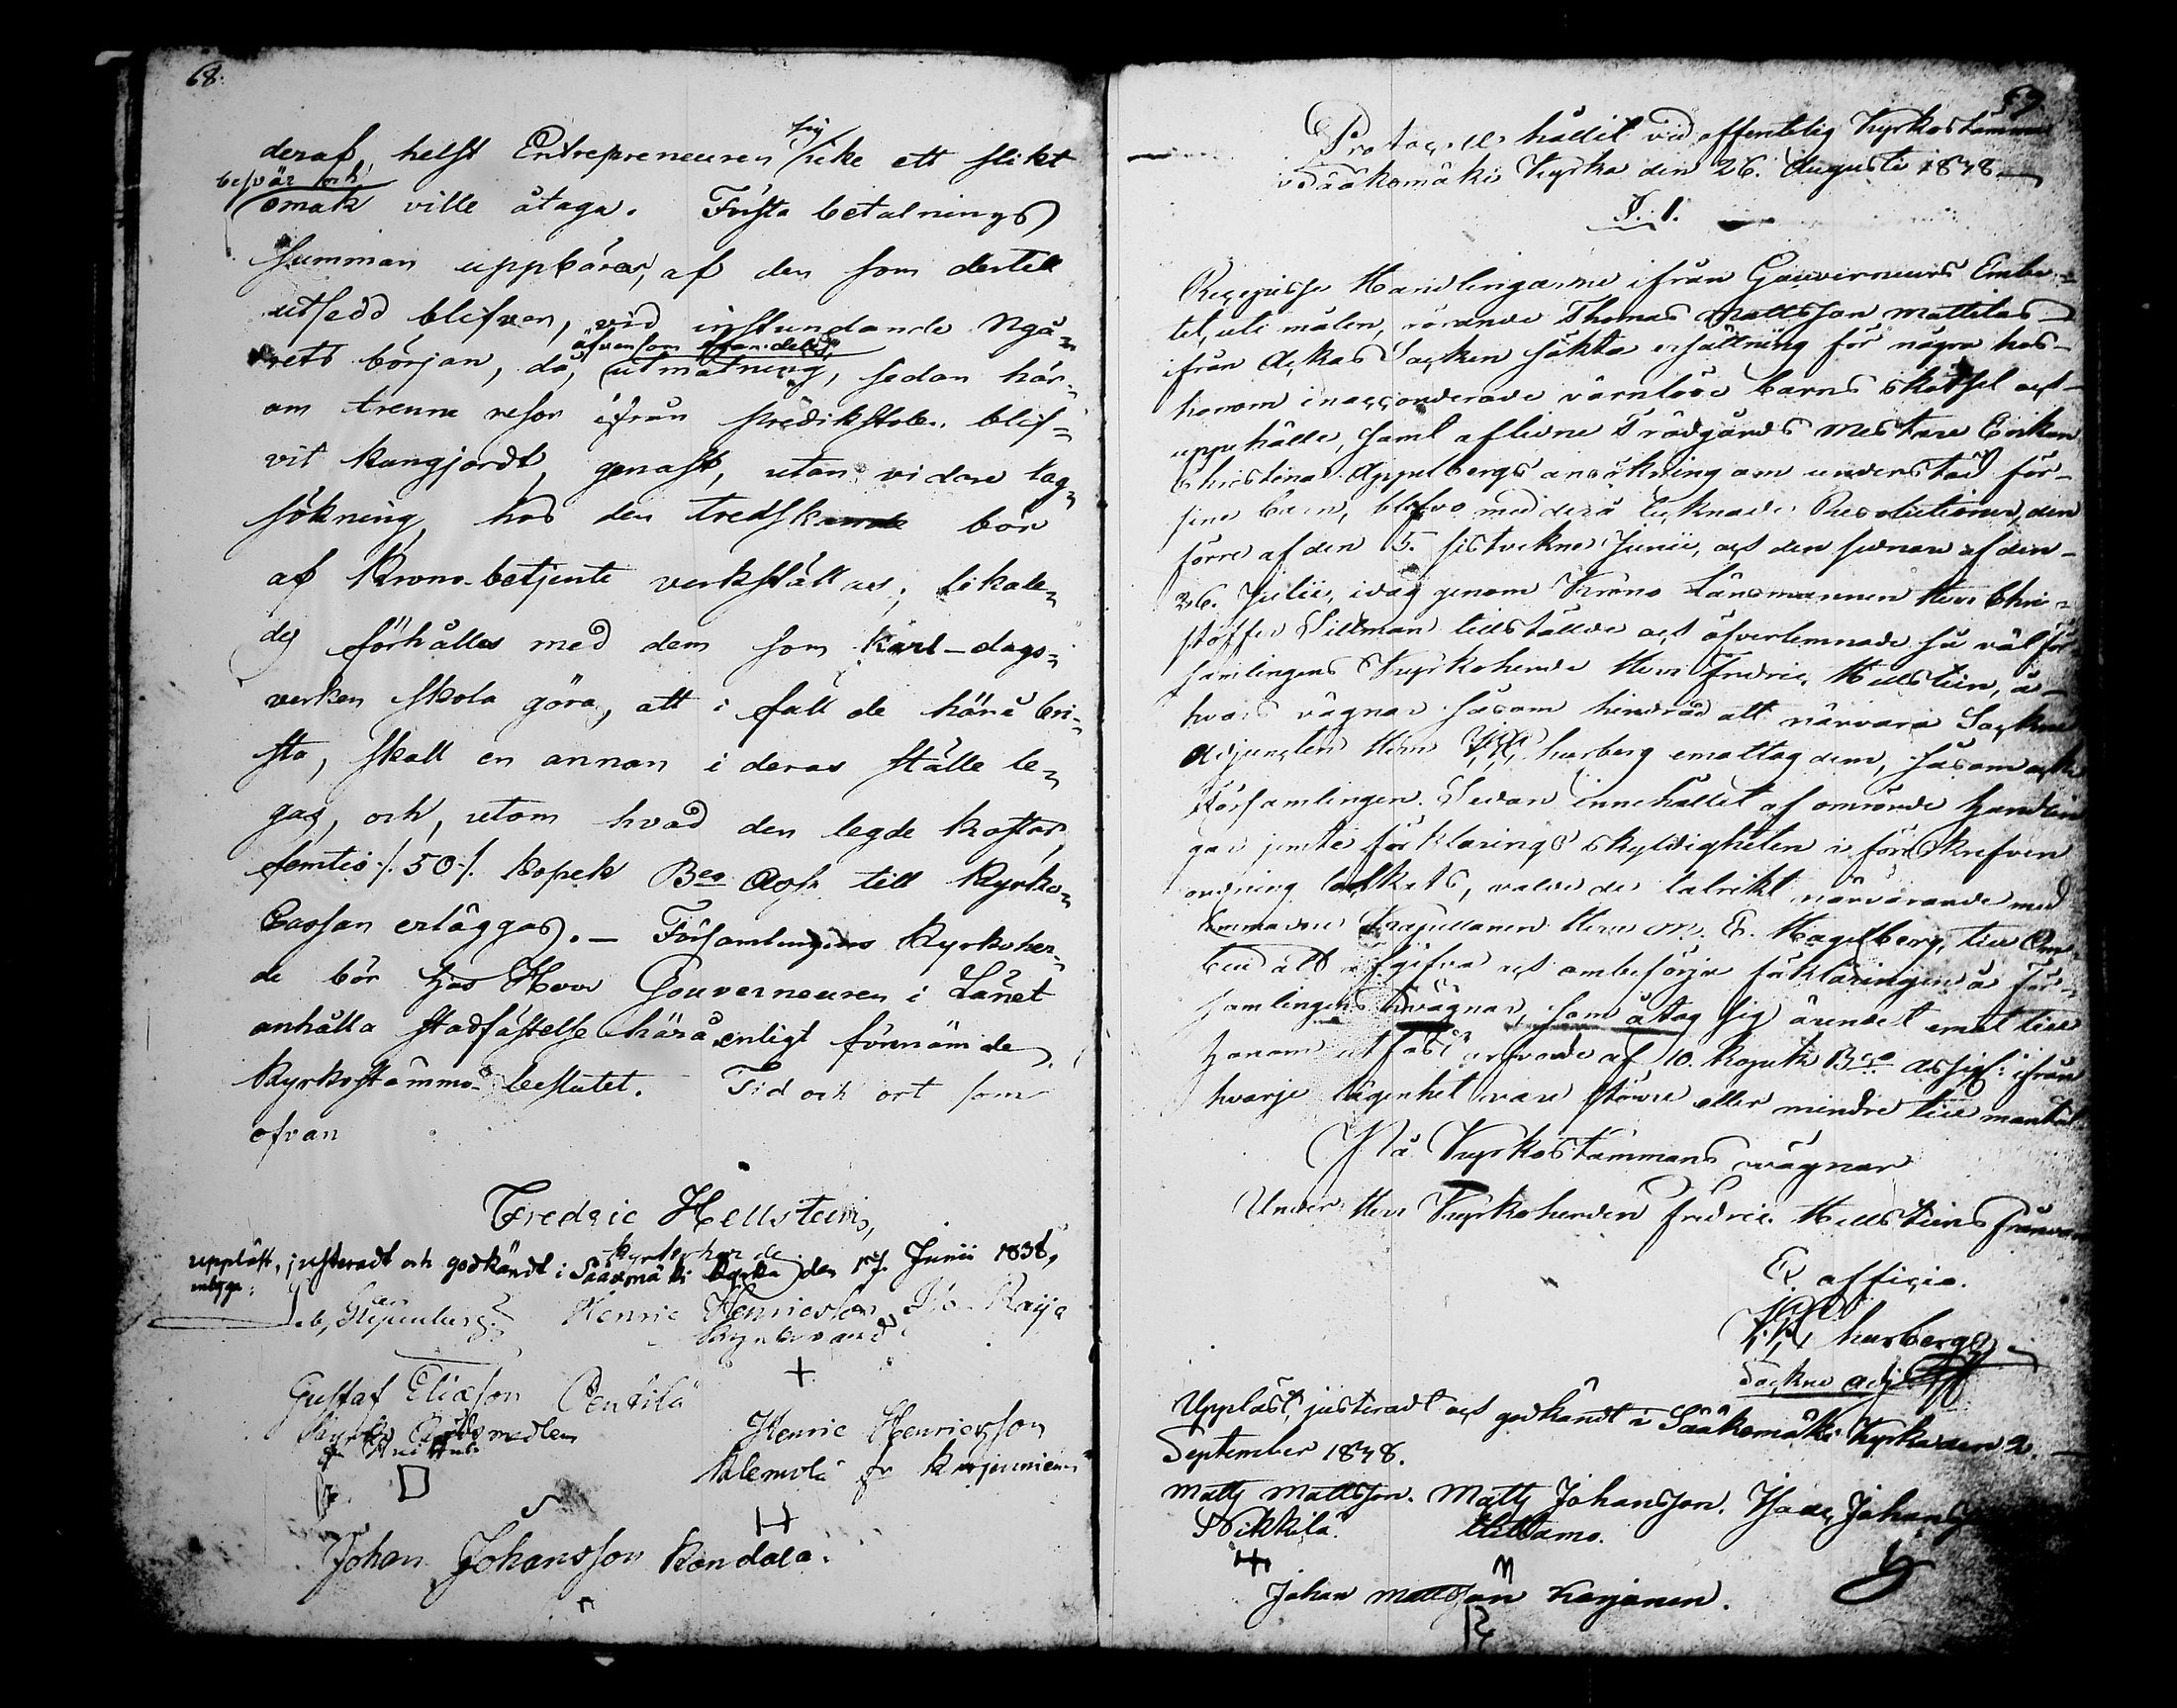 68.
deraf, helst Entrepreneuren sig icke ett slikt
besvär och
omak ville åtaga. Första betalnings
summan uppbäres, af den som dertill
utsedd blifver, vid instundande Nyå-
rets början, då, äfvensom framdeles, utmätning, sedan här-
om trenne resor ifrån predikstolen blif-
vit kungjordt, genast, utan vidare lag-
sökning, hos den tredskande bör
af Krono-betjente verkställas; likale-
des förhålles med dem som karl-dags-
verken skola göra, att i fall de härå bri-
sta, skall en annan i deras ställe le-
gas, och, utom hvad den legde kostar,
femtio /. 50 /. kopek Bco Ass. till Kyrko-
Cassan erläggas. — Församlingens Kyrkoher-
de bör hos Herr Gouverneuren i Länet
anhålla stadfästelse härå enligt förenämnde
Kyrkostämmo-beslutet. Tid och ort som
ofvan
Fredric Hellsteen,
Kyrkoherde.
Uppläst, justeradt och godkändt i Sääxmäki Kyrka den 17 Junii 1838,
intyga:
Henric Henricsson Raija
Kyrkovärd
Gustaf Eliasson Pentilä
Kyrko Rådsmedlem
Henric Henricsson
Johan Johansson Kondala.
69
Protocoll hållit vid offentelig Kyrkostämma
i Sääksmäki Kyrka den 26. Augusti 1838.
§. 1.
Recepisse Handlingarne ifrån Gouverneurs Embe-
tet, uti målen, rörande Thomas Mattsson Mattilas
ifrån Ackas Socken sökta ersättning för några hos
honom inaccorderade värnlöse barns skötsel och
uppehälle, samt aflidne Trädgårds Mästare Enkan
Christina Appelbergs ansökning om understöd för
sine barn, blefvo med derå tecknade Resolutioner, den
förre af den 5. sistvekne Junii, och den sednare af den
26. Julii, idag genom Krono Länsmannen Herr Chri-
stoffer Sillman tillställde och öfverlemnade så väl för-
samlingens Kyrkoherde Herr Fredric Hellsteen, å
hvars vägnar såsom hindrad att närvara Sockne
Adjuncten Herr harberg emottog dem, såsom ock
Församlingen. Sedan innehållet af omrörde handlin-
gar jemte förklarings skyldigheten i föreskrefven
ordning, valde de talrikt närvarande med
Herr M. E. Hagelberg, till Om-
bud att afgifva och ombesörja förklaringen å För-
samlingens vägnar, som åtog sig ärendet emot
honom utfäst arfvode af 10. Kopek Bco Assign: ifrån
hvarje lägenhet vare större eller mindre till mantal.
På Kyrkostämmans vägnar
Under Herr Kyrkoherden Fredric Hellsteens frånvaro
Ex officio.
harberg
Sockne Adj
Uppläst, justeradt och godkändt i Sääksmäki Kyrka den 2.
September 1838.
Matts Mattsson. Matts Johansson. Isaac Johansson
Nikkilä. Uittamo.
Johan Mattsson Karjanen.